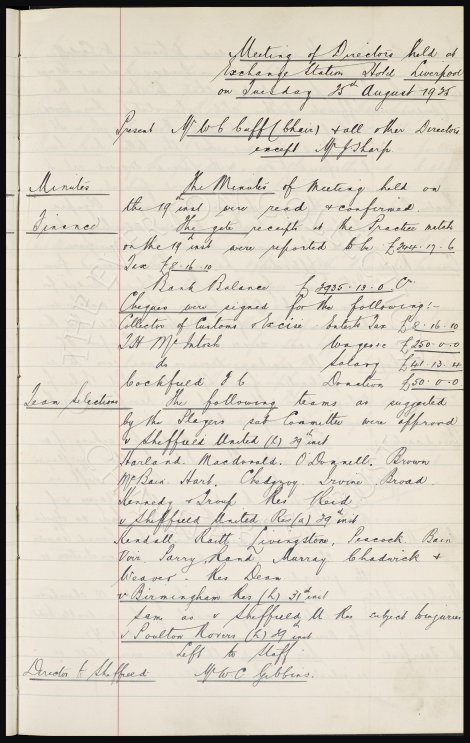 Meeting of Directors held at
Exchange Station Hotel Liverpool
on Tuesday 25th August 1925
Present Mr W C Cuff (Chair) & all other Directors
except Mr J Sharp.
Minutes The Minutes of Meeting held on
the 19th inst were read & confirmed
Finance The gate receipts at the Practice match
on the 19th inst were reported to be £344.17.6
Tax £8.16.10
Bank Balance £3935.13.0 Cr
Cheques were signed for the following:-
Collector of Customs & Excise Enterts Tax £8.16.10
T H McIntosh Wages £250.0.0
do Salary £41.13.4
Cockfield F C Donation £50.0.0
Team Selections The following teams as suggested
by the Players sub Committee were approved
v Sheffield United (h) 29th inst
Harland. Macdonald. O'Donnell. Brown
McBain. Hart. Chedgzoy Irvine Broad
Kennedy & Troup Res Reid
v Sheffield United Res (a) 29th inst
Kendall Raitt Livingstone, Peacock Bain
Virr. Parry Rand Murray Chadwick &
Weaver. Res Dean
v Birmingham Res (h) 31st inst
Same as v Sheffield U Res subject to injuries
v Poulton Rovers (h) 29th inst
Left to Staff.
Director to Sheffield Mr W C Gibbins.